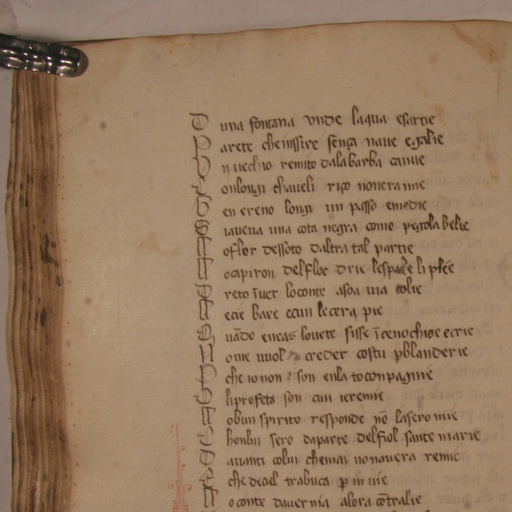 D una fontana unde laqua esartie
P arete chenissire sença naue e galie
V n uechio remito dalabarba canue
C onlongi chaueli riço nonera mie
B en ereno longi un passo emedie
E iaueua una cota negra como pegola belie
El oflor dessoto daltra tal partie
El ocapiron delfloc drie lespale li plee
D reto iuet loconte asoa uia colie
El ecie bare ecun lecera pie
Q uãdo eneas louete sisse ĩcenochioe ecrie
N o me uuol creder costu pblanderie
P che io non son enla to conpagnie
S li profeta son cun ieremie
El obun spirito responde nẽ lasero mie
C honbin sero daparte del fiol sante marie
D auanti colui chemai nonauera remie
E che dael trabuca p m uie
El o conte dauernia alora cõtralie